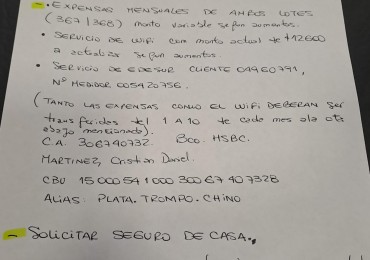 - EXPENSAS MENSUALES DE AMBOS LOTES
(367 | 368) monto variable según aumentos.
• SERVICIO DE WIFI con monto actual de $12600
a actualizar según aumentos.
• SERVICIO DE EDESUR CLIENTE 04960791,
Nº MEDIDOR 005420756.
(TANTO LAS EXPENSAS COMO EL WIFI DEBERAN SER
transferidos del 1 A 10 de cada mes a la cta
abajo mencionada).
C.A. 306740732. Bco. HSBC.
MARTINEZ, Cristian Daniel.
CBU 1500054100030067407328
ALIAS: PLATA.TROMPO.CHINO
- SOLICITAR SEGURO DE CASA.